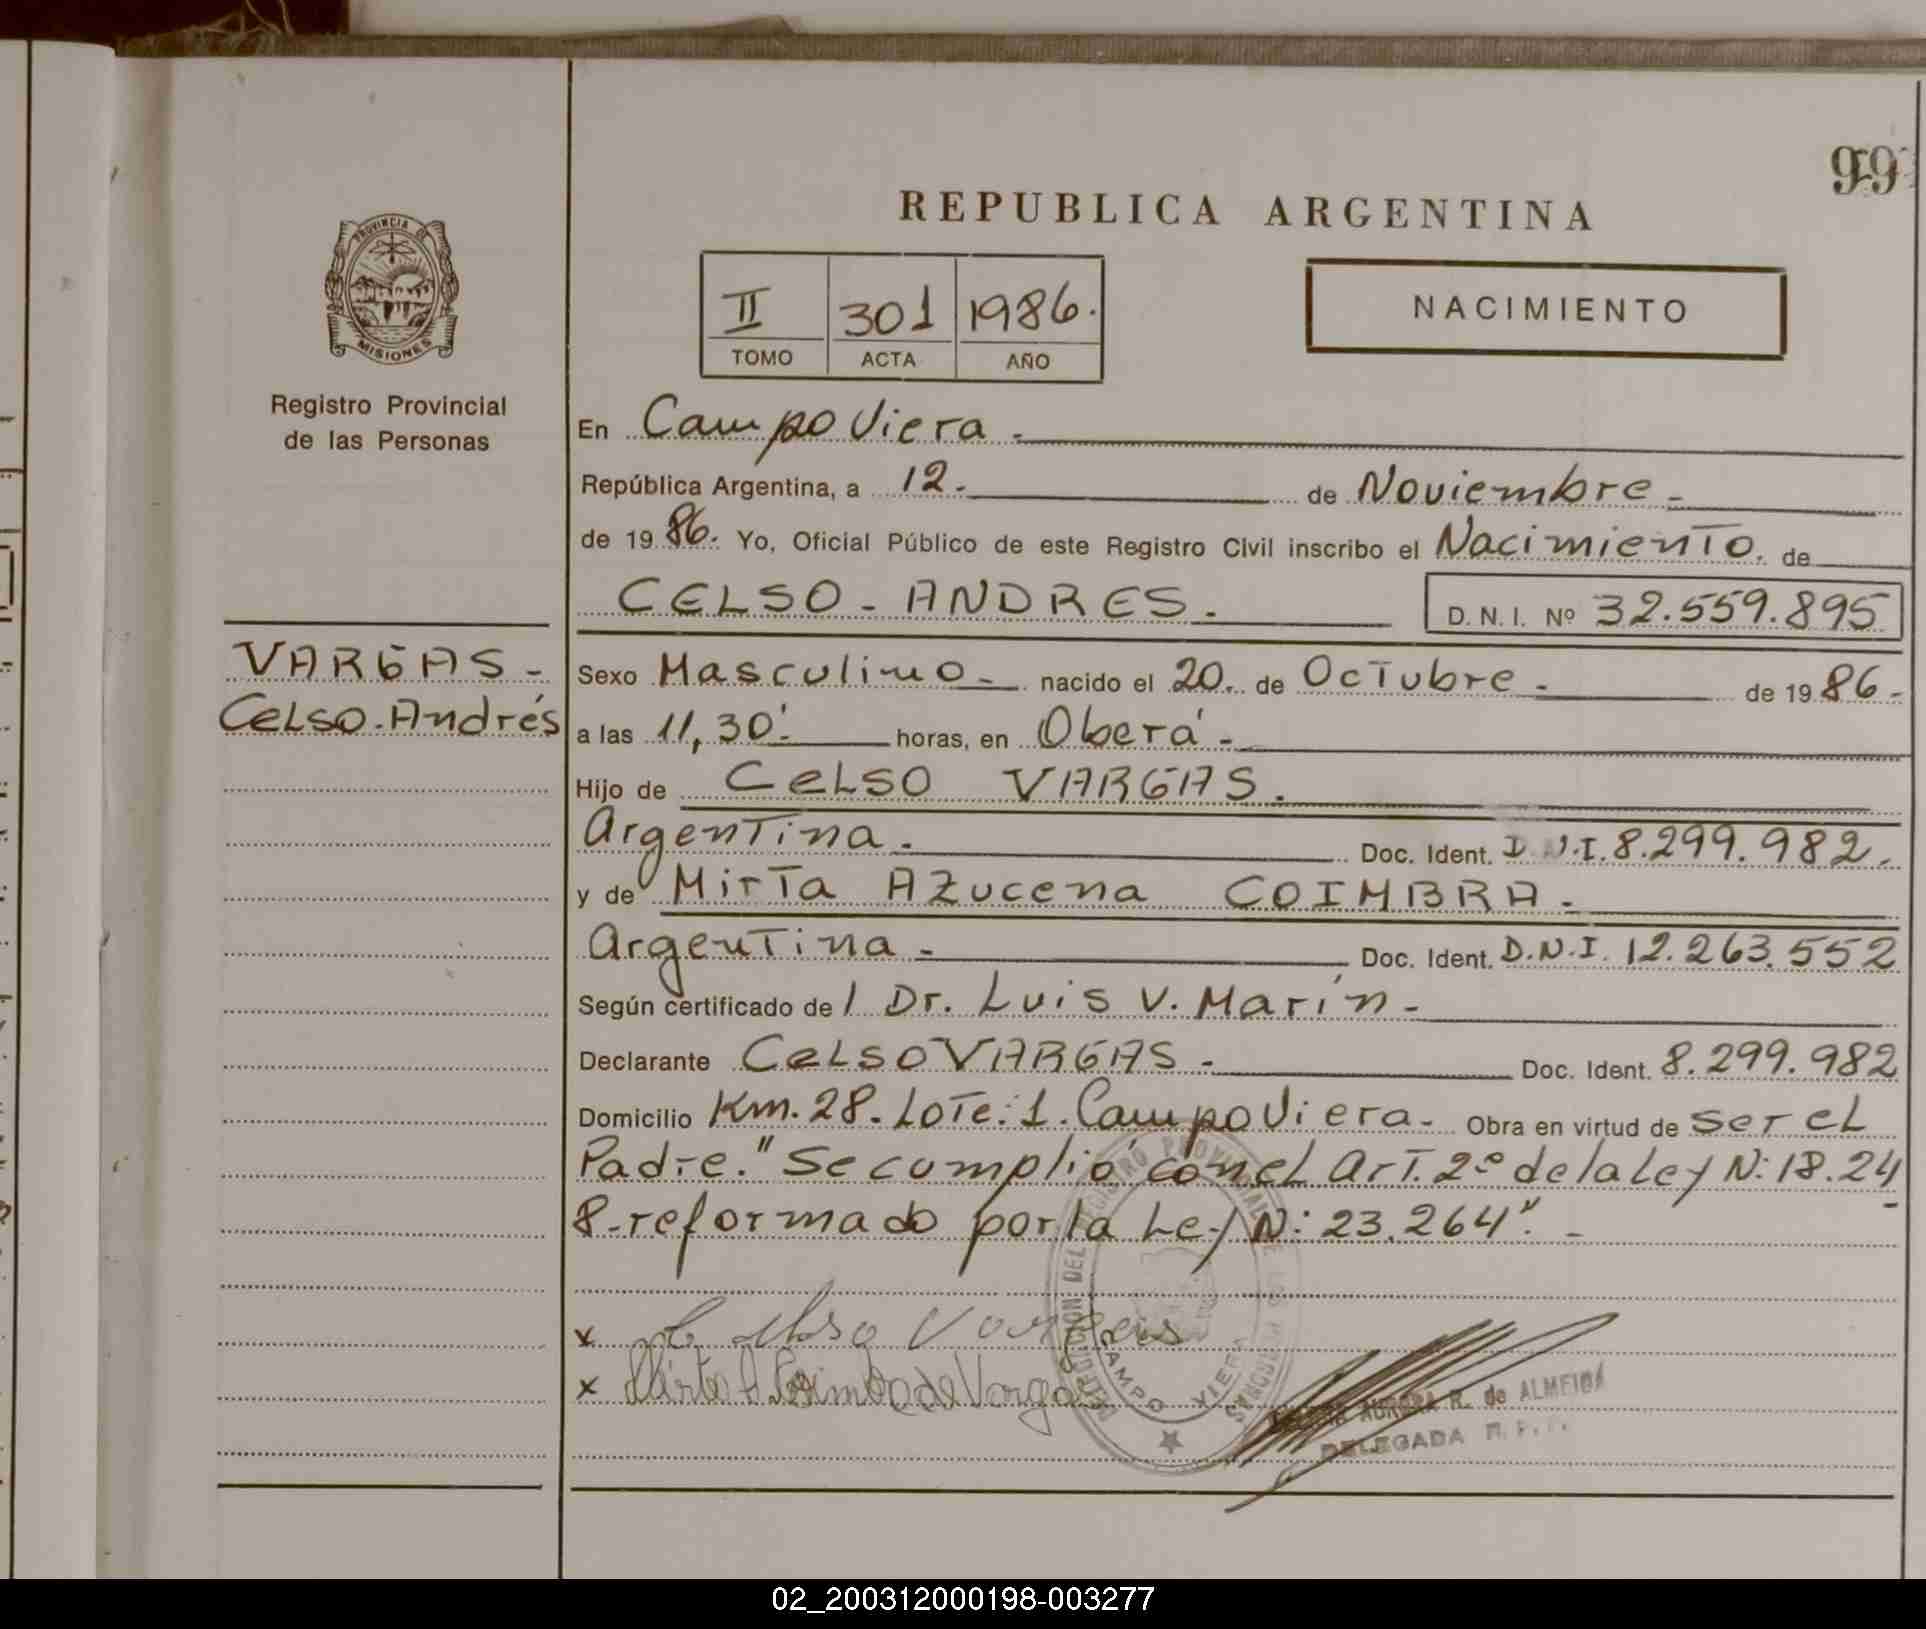 REPUBLICA ARGENTINA
PROVINCIA DE
MISIONES
Registro Provincial
de las Personas
II 301 1986.
TOMO ACTA AÑO
NACIMIENTO
En Campo Viera.
República Argentina, a 12. de Noviembre.
de 1986. Yo, Oficial Público de este Registro Civil inscribo el Nacimiento. de
CELSO - ANDRES.
D. N. I. Nº 32.559.895
VARGAS -
Celso. Andrés
Sexo Masculino - nacido el 20. de Octubre - de 1986.
a las 11,30'. horas, en Oberá -
Hijo de Celso VARGAS.
Argentina. Doc. Ident. D.N.I. 8.299.982.
y de Mirta Azucena COIMBRA.
Argentina - Doc. Ident. D.N.I. 12.263.552
Según certificado de l Dr. Luis V. Marín -
Declarante Celso VARGAS - Doc. Ident. 8.299.982
Domicilio Km. 28. Lote: 1. Campo Viera. Obra en virtud de ser el
Padre. "Se cumplió con el Art. 2º de la Ley N: 18.24
8-reformado por la Ley N: 23.264". -
x Celso Vargas
x Mirta A Coimbra de Vargas
DELEGACION DEL REGISTRO PROVINCIAL DE LAS PERSONAS
CAMPO VIERA
AURORA R. de ALMEIDA
DELEGADA R. P. P.
02_200312000198-003277